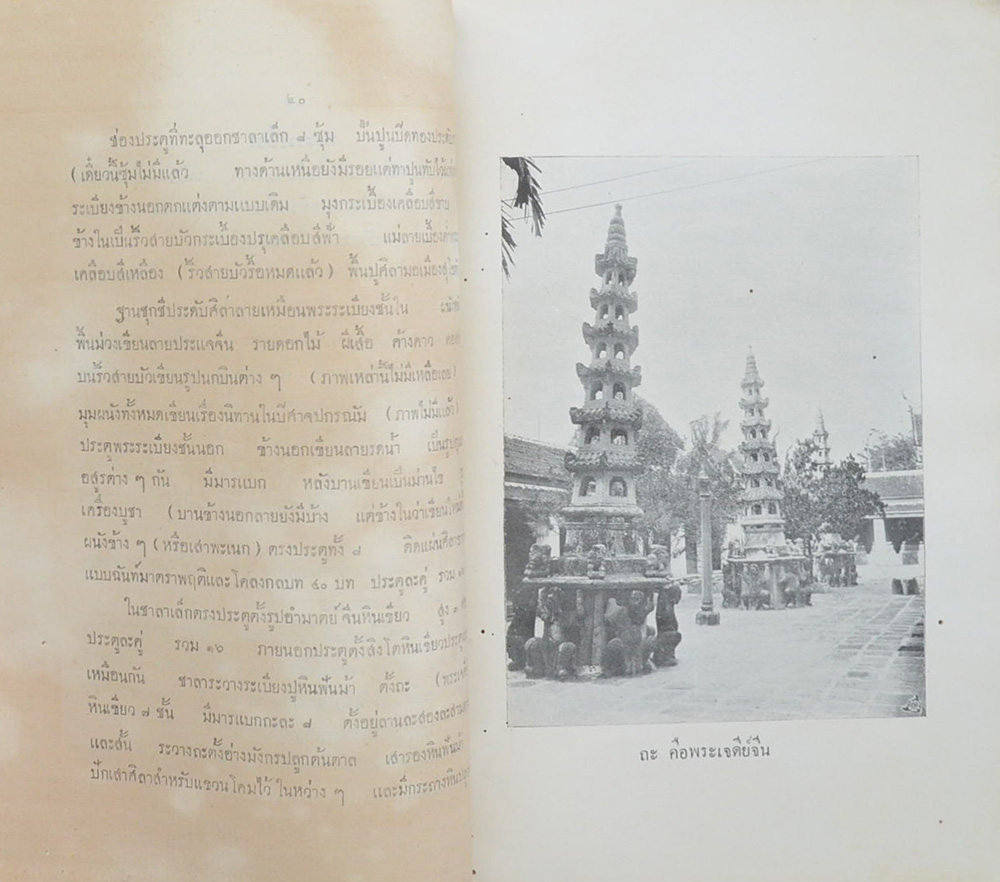 ๒๐
ช่องประตูที่ทะลุออกชาลาเล็ก ๘ ซุ้ม ปั้นปูนปิดทองประดับ
(เดี๋ยวนี้ซุ้มไม่มีแล้ว ทางด้านเหนือยังมีรอยแต่ทาปูนทับไว้
ระเบียงข้างนอกตกแต่งตามแบบเดิม มุงกระเบื้องเคลือบสีขาบ
ข้างในเป็นรั้วสายบัวกระเบื้องปรุเคลือบสีฟ้า แม่ลายเบื้อง
เคลือบสีเหลือง (รั้วสายบัวรื้อหมดแล้ว) พื้นปูศิลามอเมือง
ฐานชุกชีประดับศิลาลายเหมือนพระระเบียงชั้นใน ผนัง
พื้นม่วงเขียนลายประแจจีน รายดอกไม้ ผีเสื้อ ค้างคาว
บนรั้วสายบัวเขียนรูปนกบินต่าง ๆ (ภาพเหล่านี้ไม่มีเหลือเลย)
มุมผนังทั้งหมดเขียนเรื่องนิทานในปีศาจปกรณัม (ภาพไม่มีแล้ว)
ประตูพระระเบียงชั้นนอก ข้างนอกเขียนลายรดน้ำ เป็น
อสูรต่าง ๆ กัน มีมารแบก หลังบานเขียนเป็นม่านไข
เครื่องบูชา (บานข้างนอกลายยังมีบ้าง แต่ข้างในว่าเขียนใหม่
ผนังข้าง ๆ (หรือเสาพะเนก) ตรงประตูทั้ง ๘ ติดแผ่นศิลา
แบบฉันท์มาตราพฤติและโคลงกลบท ๔๐ บท ประตูละคู่ รวม
ในชาลาเล็กตรงประตูตั้งรูปอำมาตย์จีนหินเขียว สูง
ประตูละคู่ รวม ๑๖ ภายนอกประตูตั้งสิงโตหินเขียว
เหมือนกัน ชาลาระวางระเบียงปูหินฟันม้า ตั้งถะ
หินเขียว ๗ ชั้น มีมารแบกถะละ ๘ ตั้งอยู่ลานละสอง
และสั้น ระวางถะตั้งอ่างมังกรปลูกต้นตาล เสารองหินฟันม้า
ปักเสาศิลาสำหรับแขวนโคมไว้ ในหว่าง ๆ และมีกระถางหิน
ถะ คือพระเจดีย์จีน